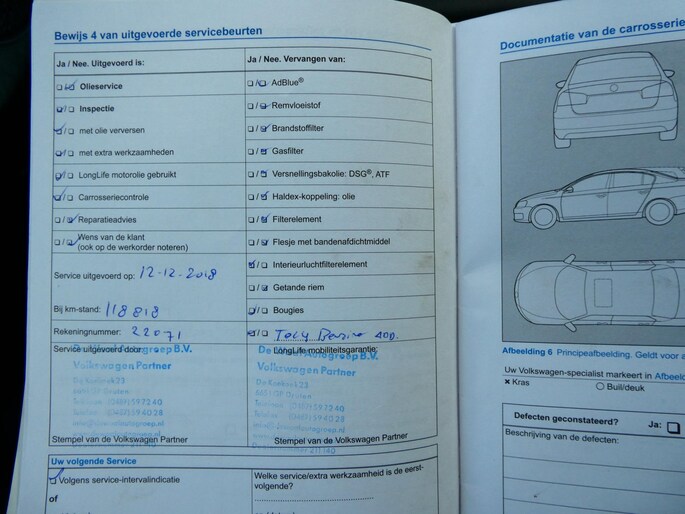 Bewijs 4 van uitgevoerde servicebeurten
Ja / Nee. Uitgevoerd is:
Olieservice
Inspectie
met olie verversen
met extra werkzaamheden
LongLife motorolie gebruikt
Carrosseriecontrole
Reparatieadvies
Wens van de klant
(ook op de werkorder noteren)
Service uitgevoerd op: 12-12-2018
Bij km-stand: 118818
Rekeningnummer: 22071
Service uitgevoerd door:
Autogroep B.V.
Volkswagen Partner
Stempel van de Volkswagen Partner
Ja / Nee. Vervangen van:
AdBlue®
Remvloeistof
Brandstoffilter
Gasfilter
Versnellingsbakolie: DSG®, ATF
Haldex-koppeling: olie
Filterelement
Flesje met bandenafdichtmiddel
Interieurluchtfilterelement
Getande riem
Bougies
LongLife mobiliteitsgarantie:
Autogroep B.V.
Volkswagen Partner
Stempel van de Volkswagen Partner
Uw volgende Service
Volgens service-intervalindicatie
of
Welke service/extra werkzaamheid is de eerst-
volgende?
Documentatie van de carrosserie
Afbeelding 6 Principeafbeelding. Geldt voor
Uw Volkswagen-specialist markeert in
× Kras
Buil/deuk
Defecten geconstateerd? Ja:
Beschrijving van de defecten: